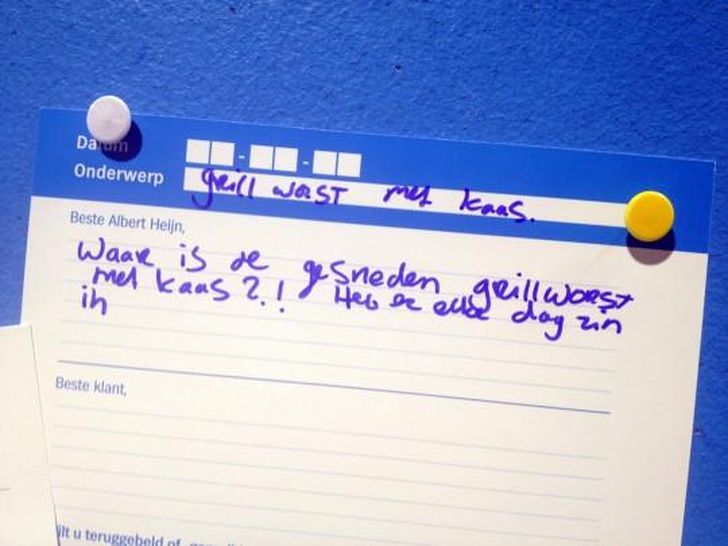 Datum
Onderwerp grill worst met kaas.
Beste Albert Heijn,
Waar is de gesneden grillworst
met kaas?.! Heb er elke dag zin
in
Beste klant,
ilt u teruggebeld of